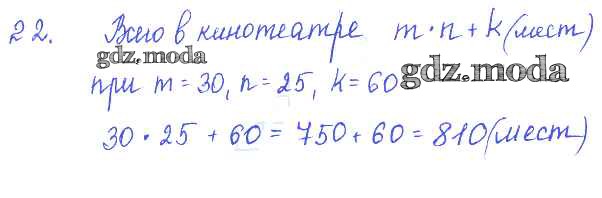 22. Всего в кинотеатре m·n + k (мест)
gdz.moda
при m = 30, n = 25, k = 60
gdz.moda
30 · 25 + 60 = 750 + 60 = 810 (мест)